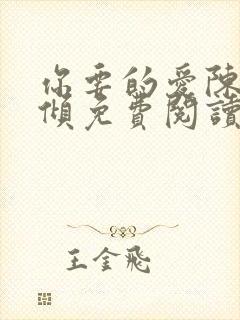 你要的愛陳
傾免費閱讀
王金飛